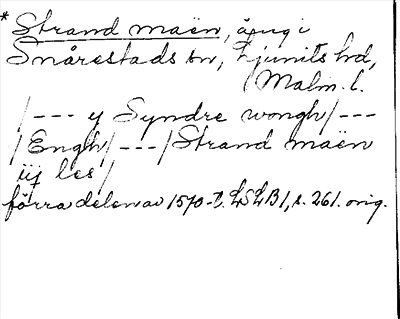 *Strand maën, äng i
Snårestads sn, Ljunits hd,
Malm. l.
/--- y Syndre wongh/---
/Engh/---/Strand maën
iij les/
förra delen av 1570-t. LSLB1, s. 261. orig.